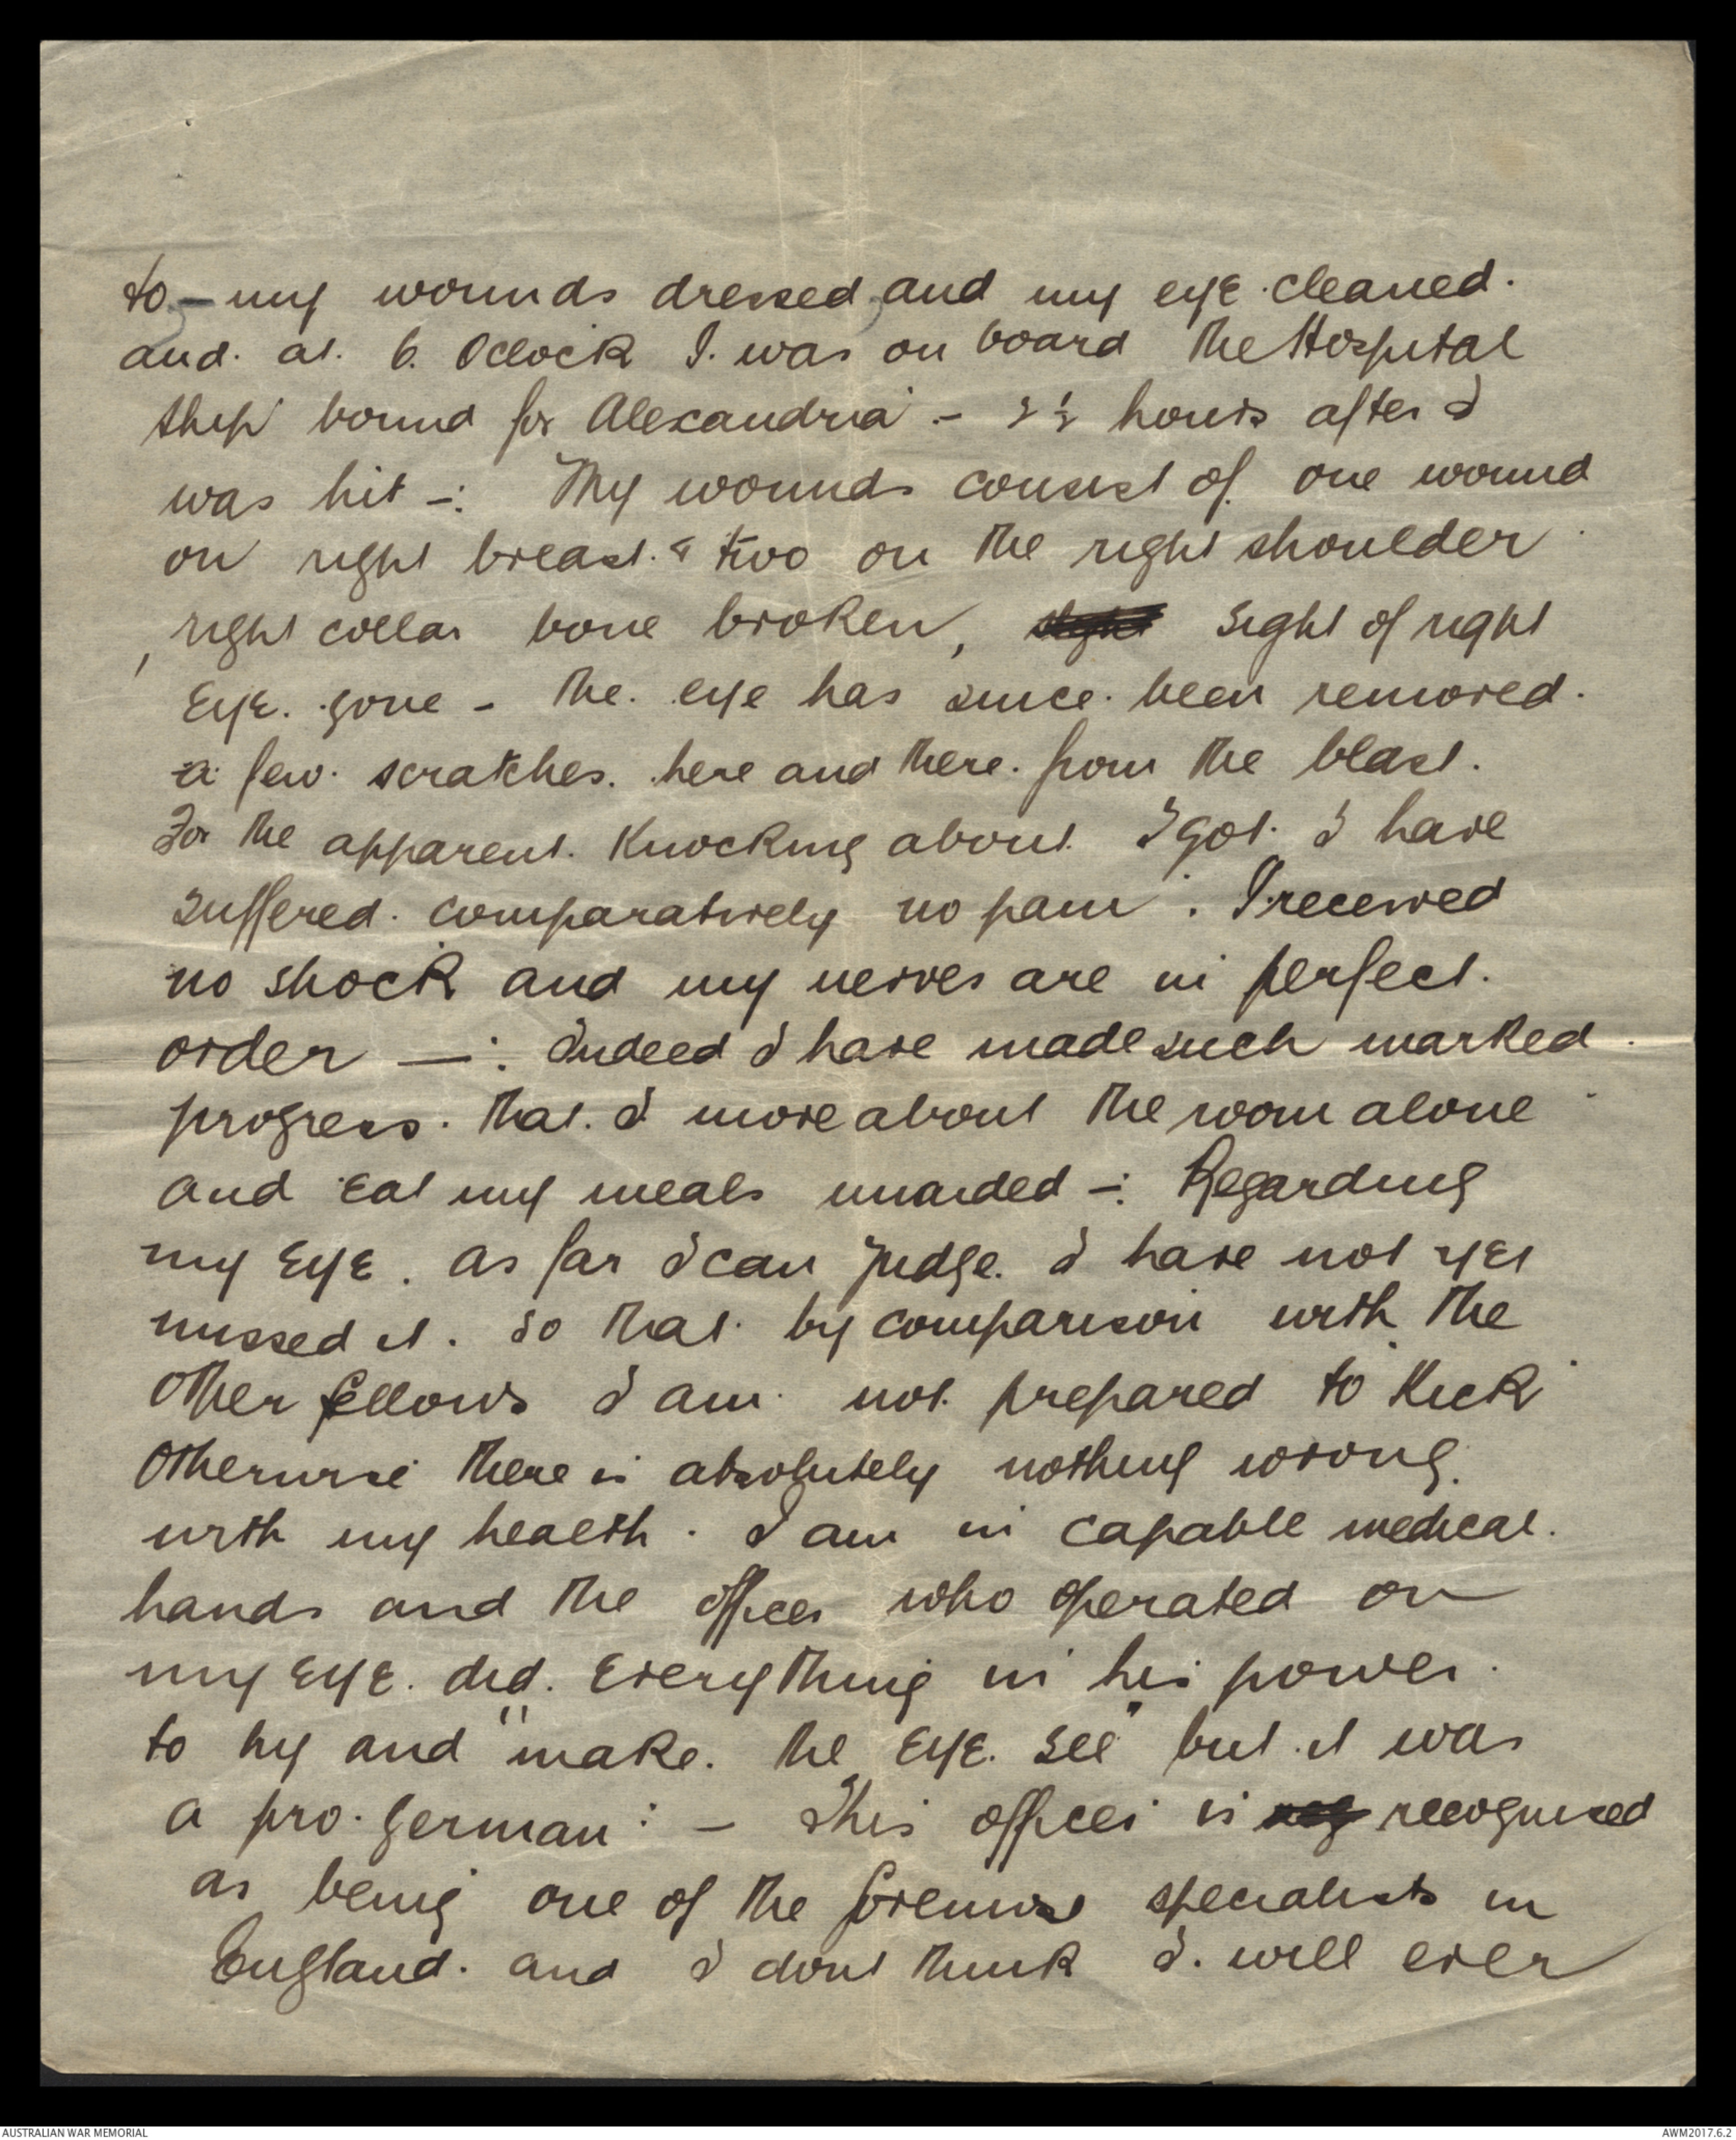 to - my wounds dressed, and my eye cleaned.
and. at. 6. Oclock I. was on board the Hospital
ship bound for Alexandria - 2½ hours after I
was hit -: My wounds consist of. one wound
on right breast. & two on the right shoulder
, right collar bone broken, sight of right
Eye. gone - the. eye has since. been removed.
a few. scratches. here and there. from the blast.
For the apparent. Knocking about I got. I have
suffered. comparatively no pain. I received
no shock and my nerves are in perfect.
order —: Indeed I have made such marked.
progress. that. I move about the room alone
and eat my meals unaided -: Regarding
my Eye. as far I can judge. I have not yet
missed it. so that. by comparison with the
other fellows I am not. prepared to Kick
Otherwise there is absolutely nothing wrong.
with my health. I am in capable medical.
hands and the officer who operated on
my Eye. did. Everything in his power.
to try and "make. the Eye. see" but. it was
a pro. german: - This officer is recognised
as being one of the foremost specialists in
England. and I dont think I. will ever
AUSTRALIAN WAR MEMORIAL
AWM2017.6.2